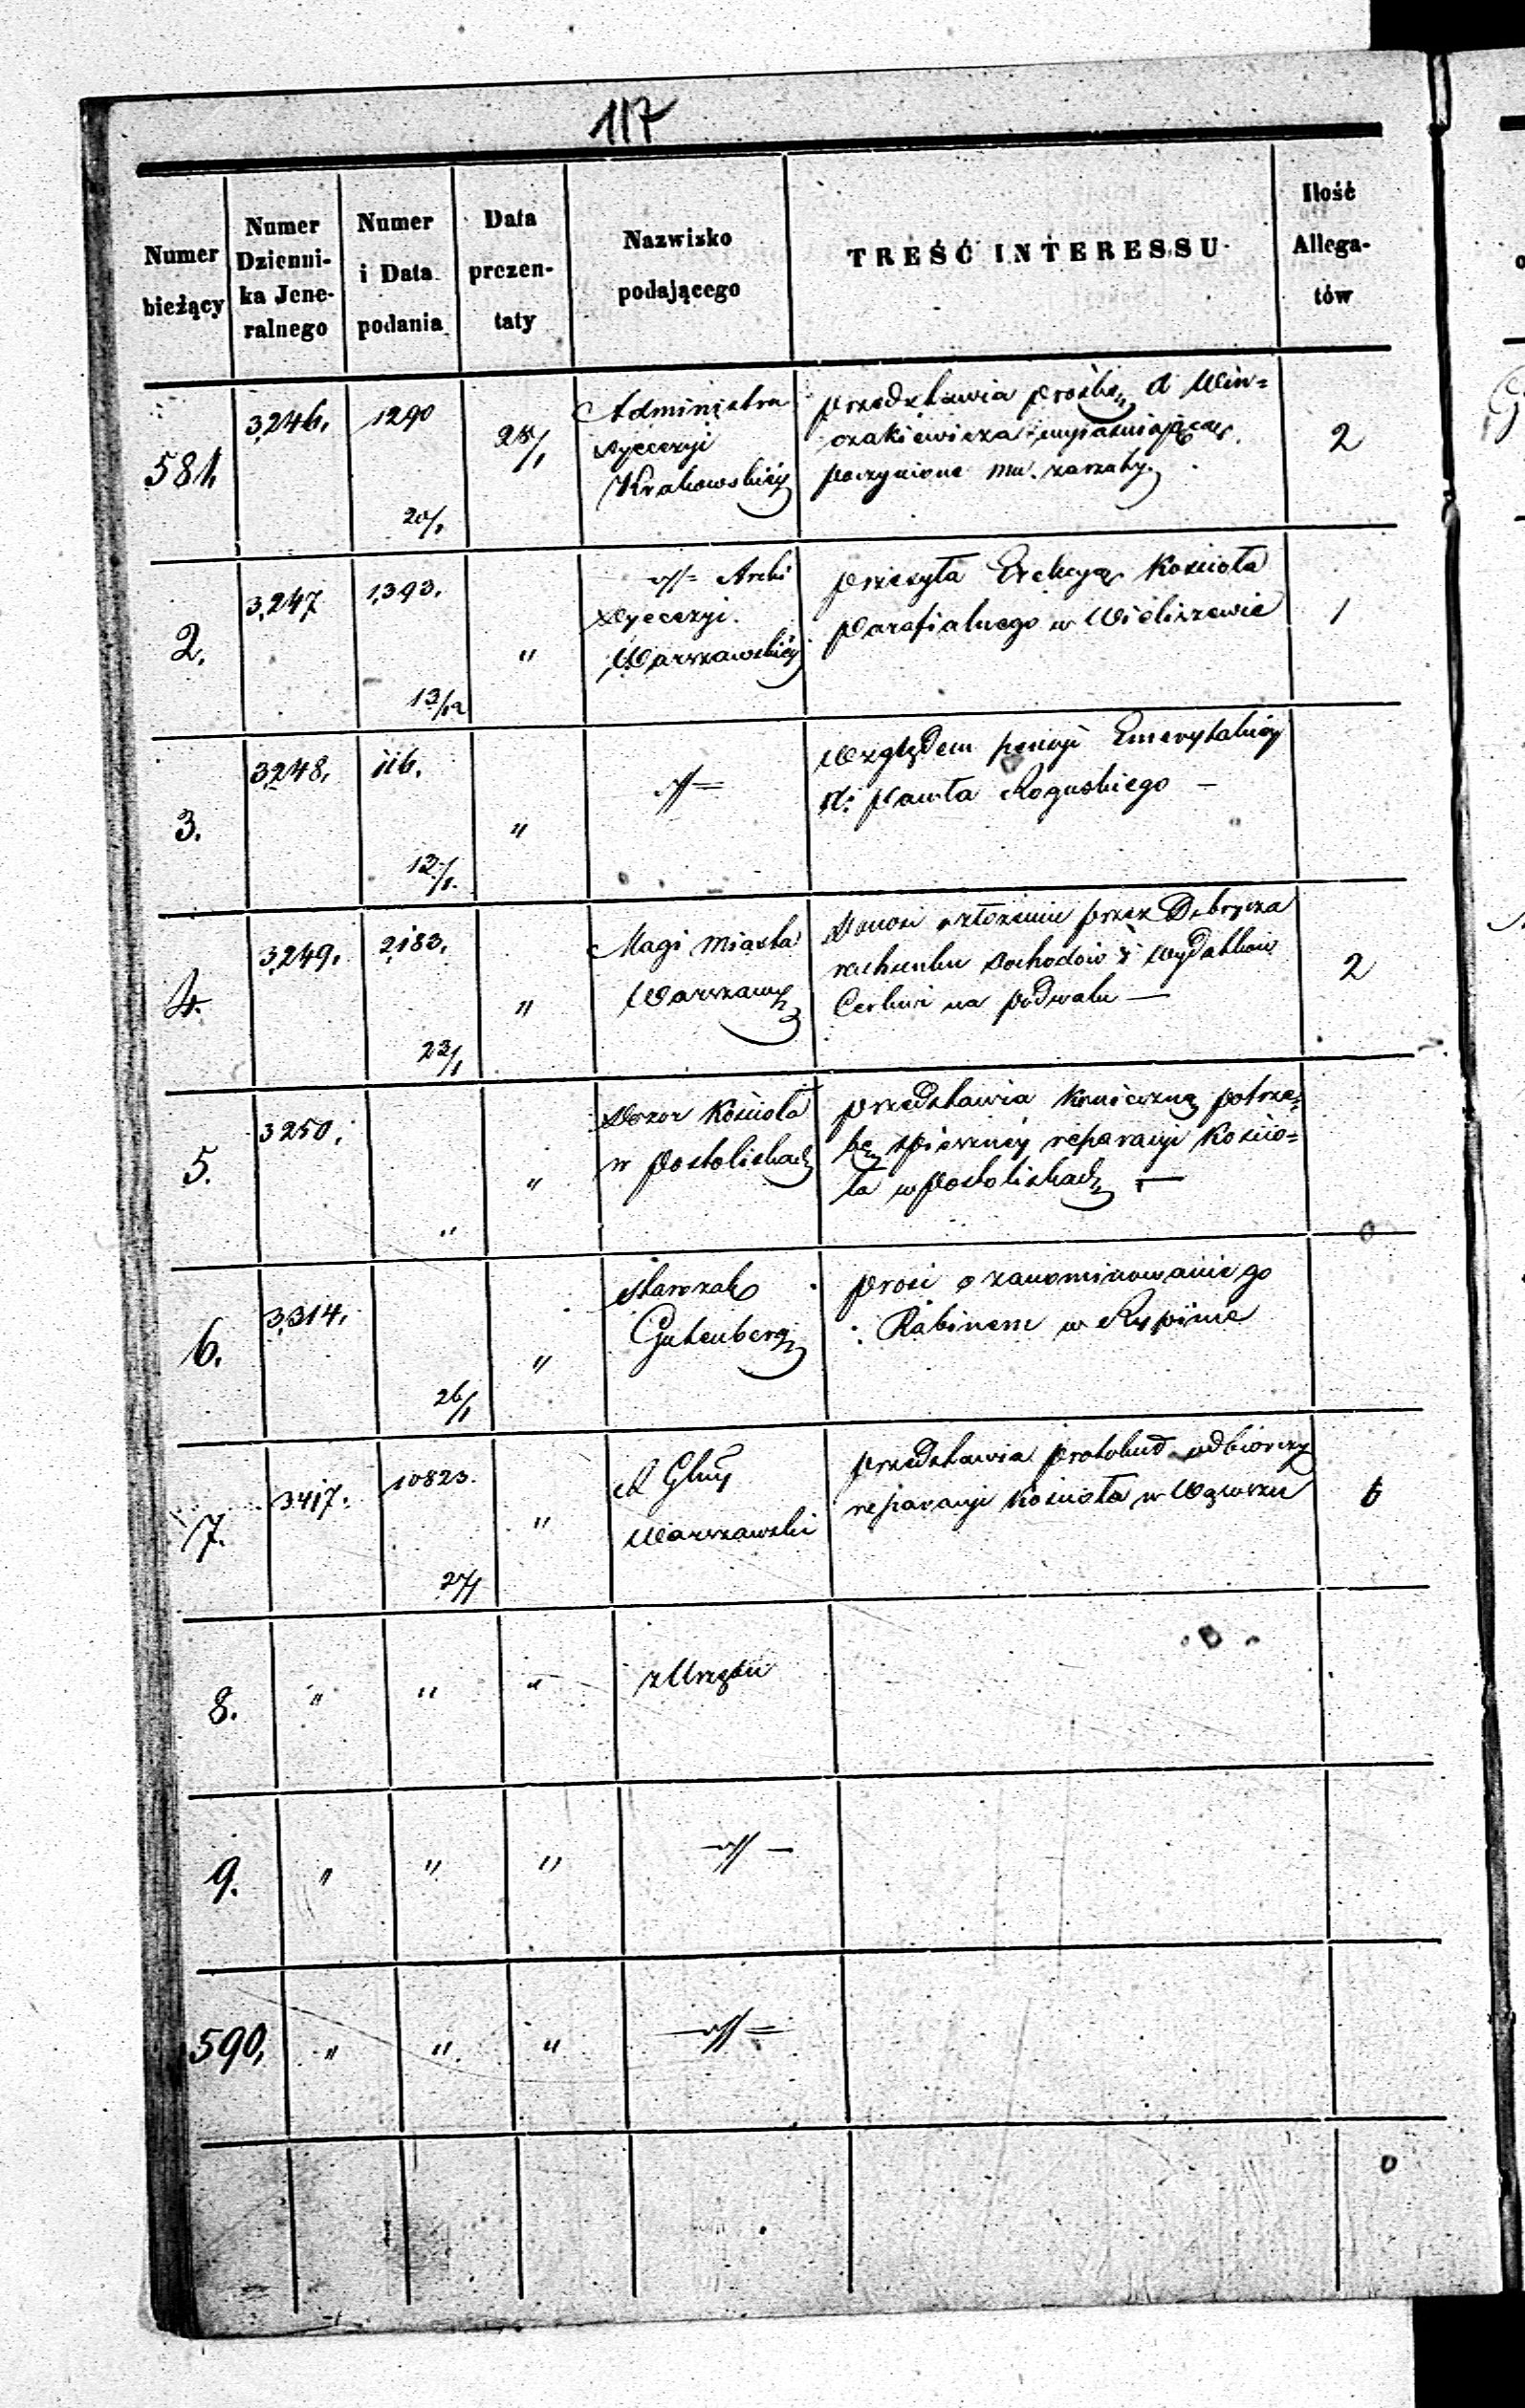 117
Numer bieżący
Numer Dzienni-ka Jene-ralnego
Numer i Data podania
Data prezen-taty
Nazwisko podającego
TREŚĆ INTERESSU
Ilość Allega-tów
581. 3246. 1290 20/1 28/1
Administra
Dyecezyi
Krakowskiéy
przedstawia prośbę X Win=
czakiewicza wyiaśniaiącą
poczynione mu zarzuty.
2
2. 3247 1393. 13/12 "
-//= Archi
Dyecezyi
Warszawskiéy
przesyła Erekcyą Kościoła
Parafialnego w Wieliszewie
1
3. 3248. 116. 12/1. "
-//=
Względem pensyi Emerytalnéy
X: Pawła Roguskiego —
4. 3249. 2183. 23/1 "
Magi Miasta
Warszawy
Donosi o złożeniu przez Dobrycza
rachunku dochodów i wydatków
Cerkwi na podwalu —
2
5. 3250. " "
Dozor Kościoła
w Postoliskach
przedstawia konieczną potrze=
bę spieszney reparacyi Kościo=
ła w Postoliskach —
6. 3314. 26/1 "
Gutenberg
prosi o zanominowanie go
Rabinem w Rypinie
7. 3417. 10823. 27/1 "
R Gluy
Warszawski
przedstawia protokuł odbiorczy
reparacyi Kościoła w Wąwrzu
6
8. " " "
z Urzędu
9. " " "
-//-
590. " " "
-//=